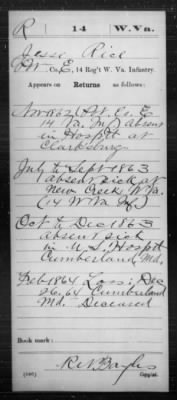 R 14 W.Va.
Jesse Rice
Pvt., Co. E, 14 Reg't W. Va. Infantry.
Appears on Returns as follows:
Nov 1862 (Pvt. Co. E
14 W. Va. Inf.) absent
in Hospitl at
Clarksburg
July to Sept 1863
absent sick at
New Creek W. Va.
(14 W Va Inf.)
Oct to Dec 1863
absent sick
in U.S. Hospitl
Cumberland, Md.
Feb 1864 Loss: Dec
26, 64 Cumberland
Md. Deceased
Book mark:
Copyist.